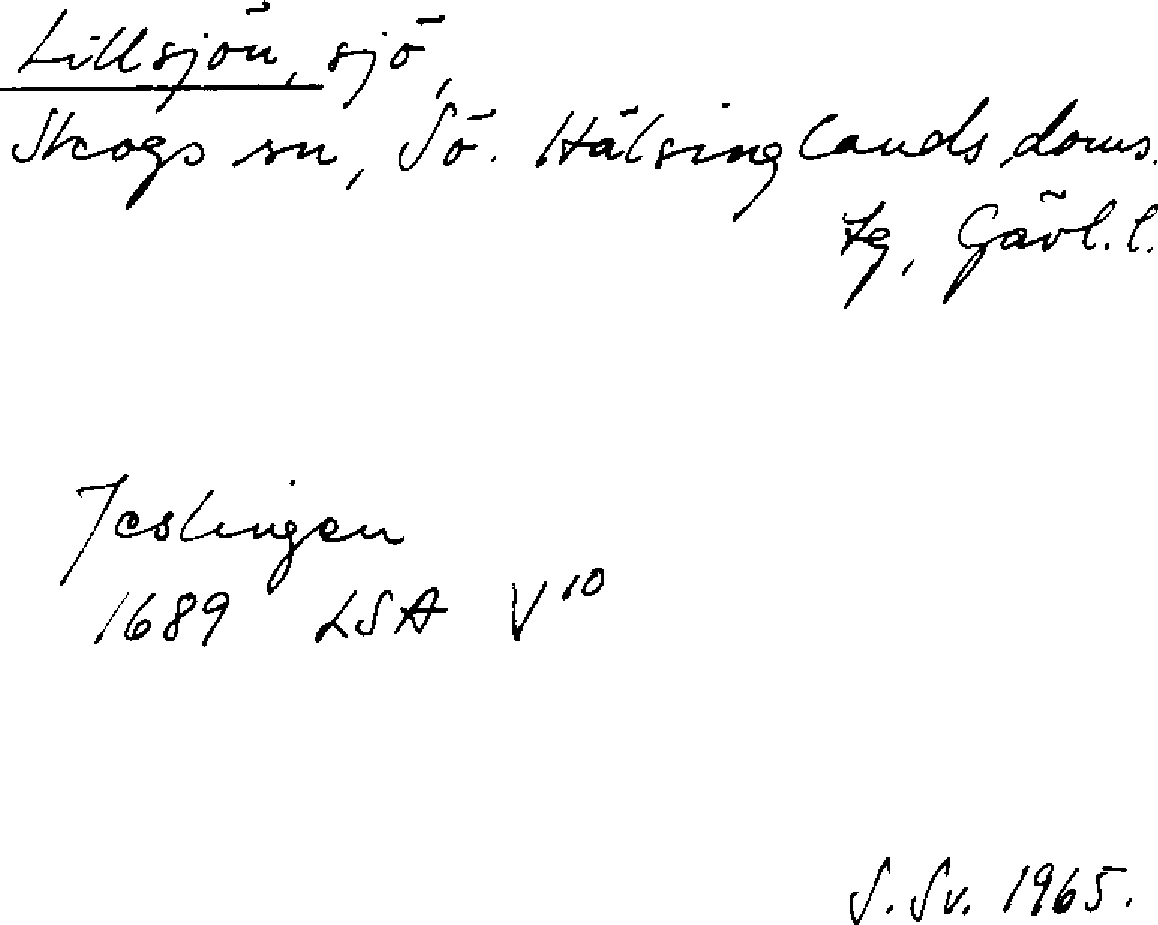 Lillsjön, sjö,
Skogs sn, Sö. Hälsinglands doms.
tg, Gävl. l.
Jeslingen
1689 LSA V 10
S. Sv. 1965.